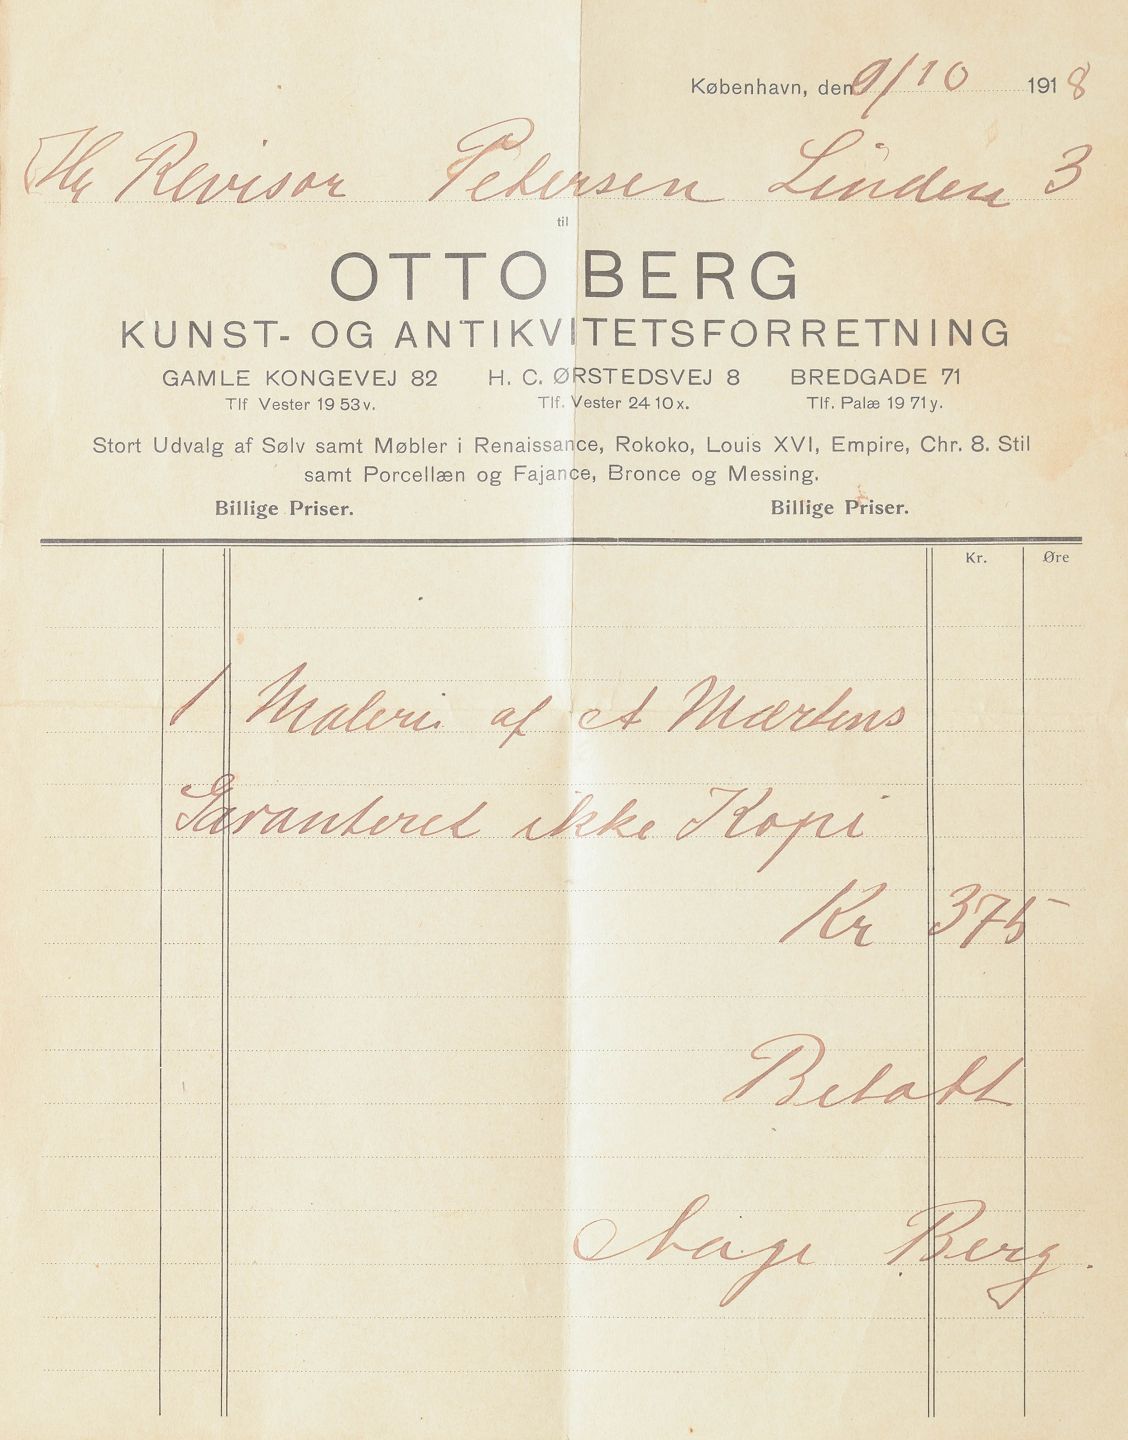 København, den 9/10 1918
Hr Revisor Petersen Linden 3
til
OTTO BERG
KUNST- OG ANTIKVITETSFORRETNING
GAMLE KONGEVEJ 82 H. C. ØRSTEDSVEJ 8 BREDGADE 71
Tlf Vester 19 53 v. Tlf. Vester 24 10 x. Tlf. Palæ 19 71 y.
Stort Udvalg af Sølv samt Møbler i Renaissance, Rokoko, Louis XVI, Empire, Chr. 8. Stil
samt Porcellæn og Fajance, Bronce og Messing.
Billige Priser. Billige Priser.
Kr. Øre
1 Maleri af A Mærtens
Garanteret ikke Kopi
Kr 375 -
Betalt
Aage Berg.